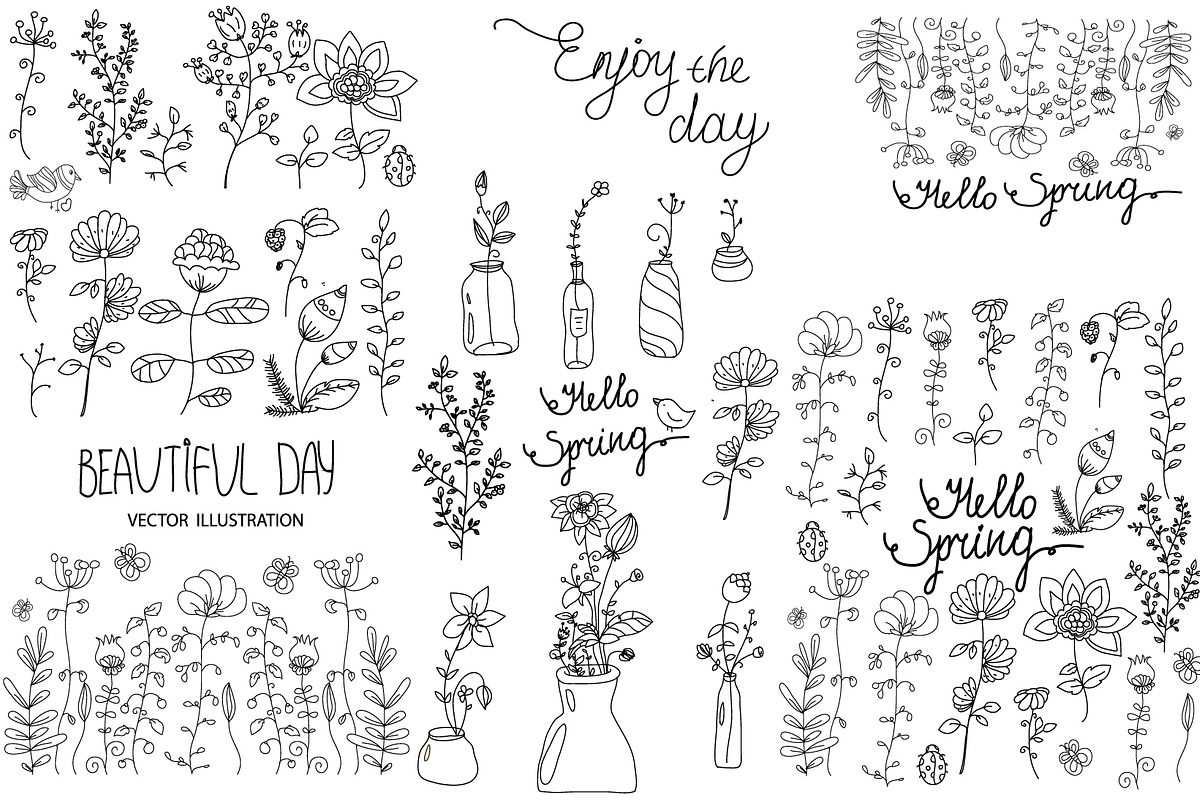 Enjoy the
day
Hello Spring
Hello
Spring
BEAUTIFUL DAY
VECTOR ILLUSTRATION
Hello
Spring